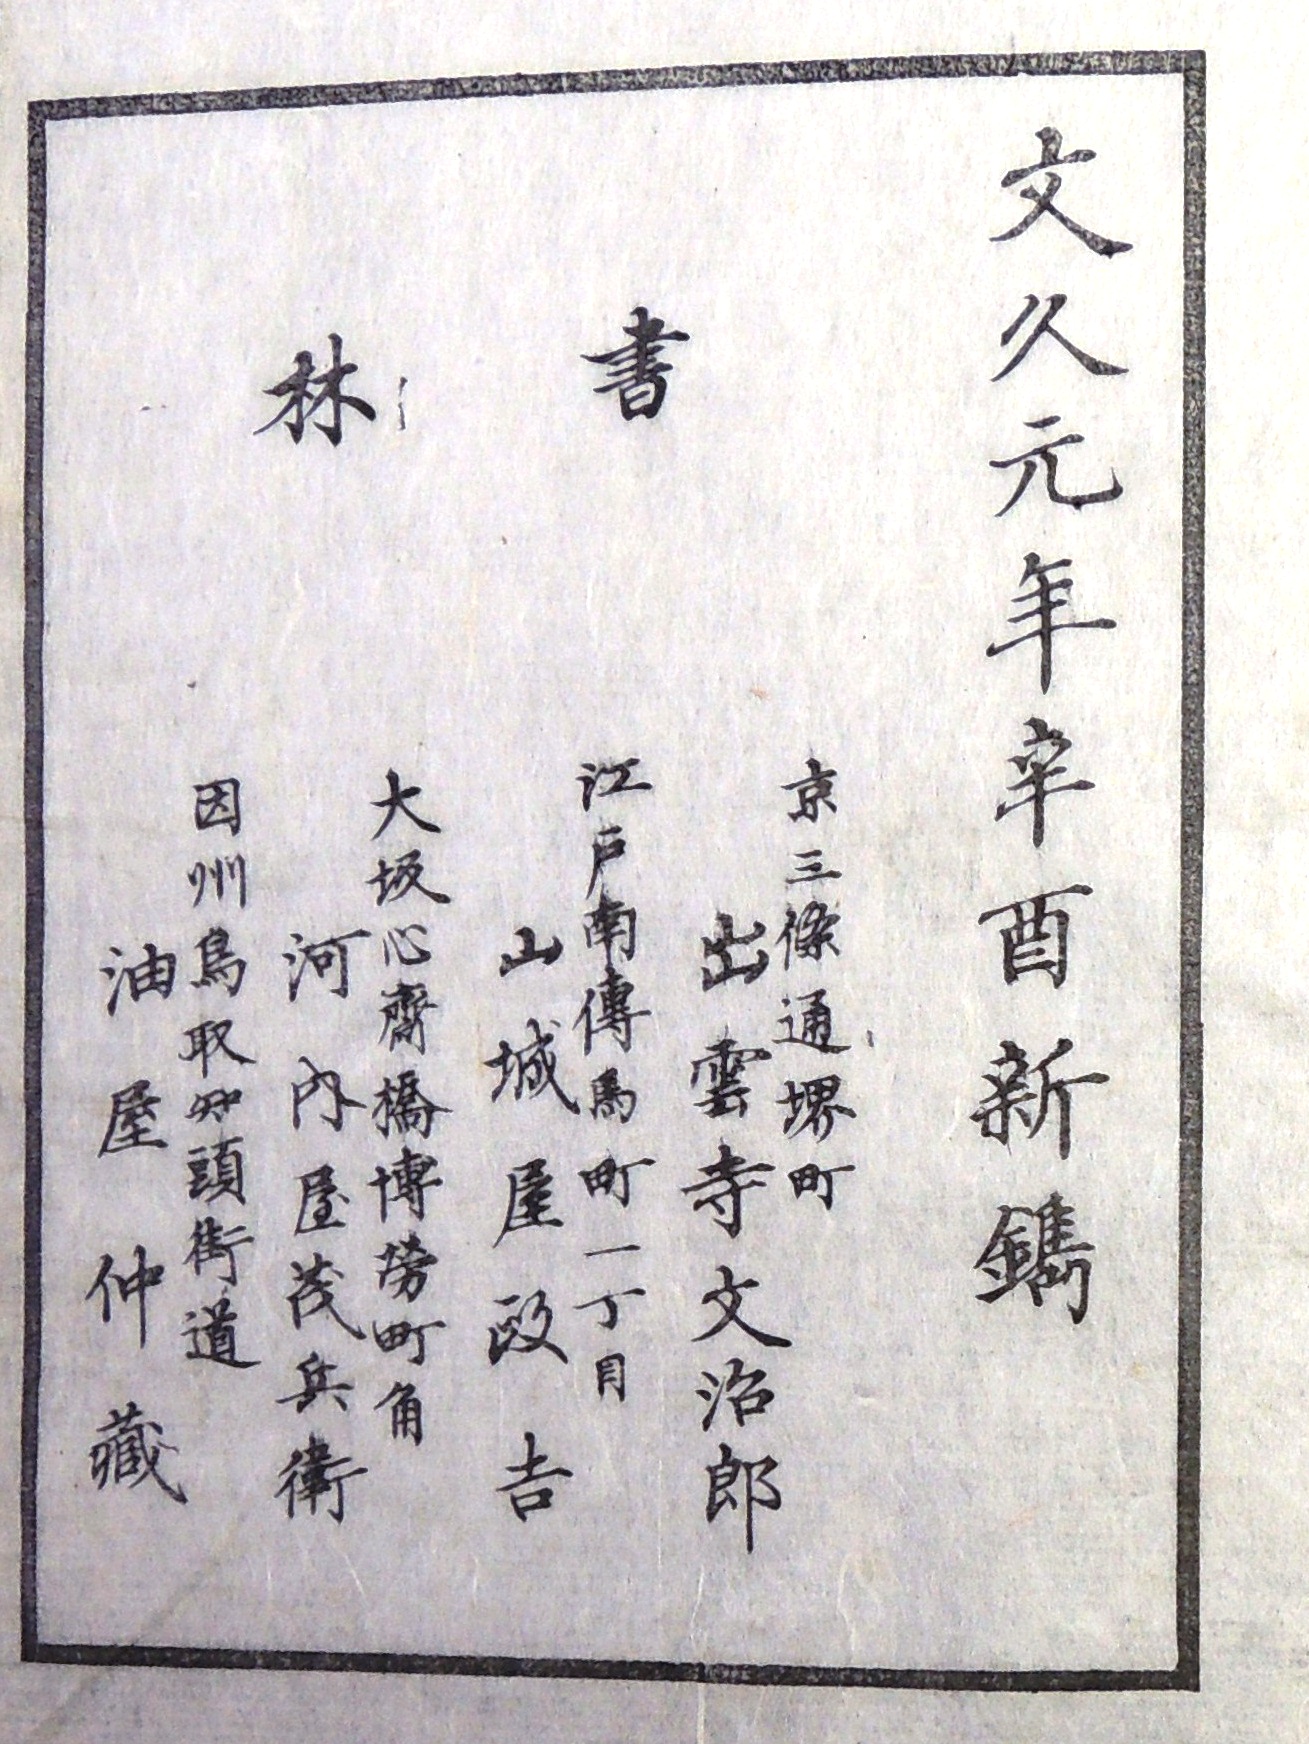 文久元年辛酉新鐫
書林
京三條通堺町
出雲寺文治郎
江戸南傳馬町一丁目
山城屋政吉
大坂心齋橋博勞町角
河内屋茂兵衛
因州鳥取知頭街道
油屋仲藏